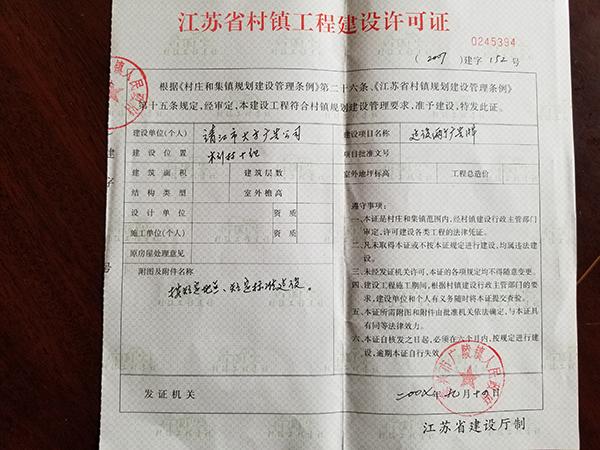 江苏省村镇工程建设许可证
0245394
(2007)建字152号
根据《村庄和集镇规划建设管理条例》第二十六条、《江苏省村镇规划建设管理条例》
第十五条规定,经审定,本建设工程符合村镇规划建设管理要求,准予建设,特发此证。
建设单位(个人) 靖江市大方广告公司
建设项目名称
建设位置
项目批准文号
建筑面积 建筑层数 室外地坪标高 工程总造价
结构类型 室外檐高
设计单位 资质
施工单位(个人) 资质
原房屋处理意见
附图及附件名称
按指定地点、指定标准建设。
发证机关
遵守事项:
一、本证是村庄和集镇范围内,经村镇建设行政主管部门
审定,许可建设各类工程的法律凭证。
二、凡未取得本证或不按本证规定进行建设,均属违法建
设。
三、未经发证机关许可,本证的各项规定均不得随意变更。
四、建设工程施工期间,根据村镇建设行政主管部门的要
求,建设单位和个人有义务随时将本证提交查验。
五、本证所需附图和附件由批准机关依法确定,与本证具
有同等法律效力。
六、本证自核发之日起,必须在六个月内,按规定进行建
设,逾期本证自行失效。
泰兴市广陵镇人民政府
江苏省建设厅制
建字
号